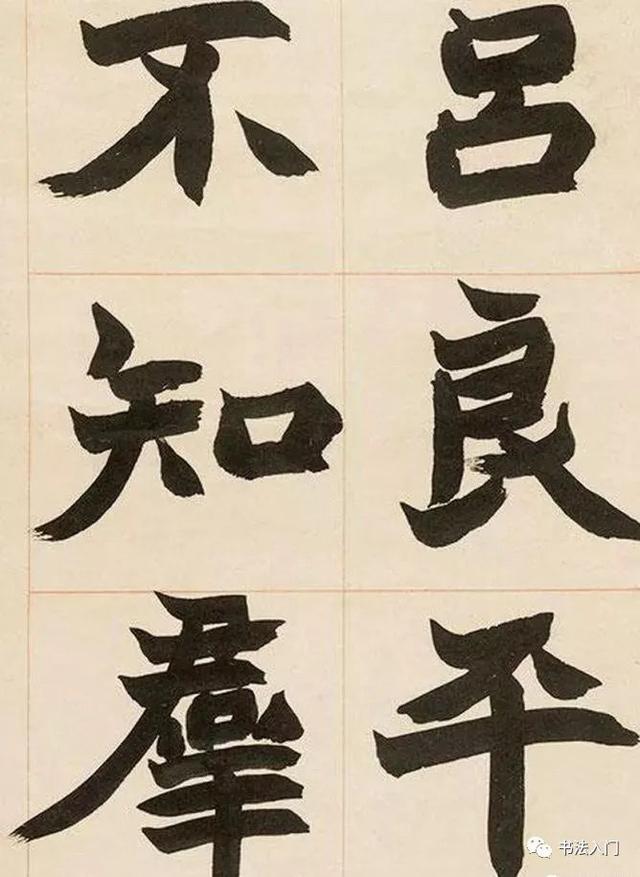 呂良平
不知羣
书法入门